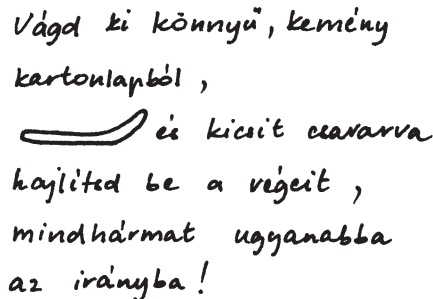 Vágd ki könnyű, kemény
kartonlapból,
és kicsit csavarva
hajlítsd be a végeit,
mindhármat ugyanabba
az irányba!